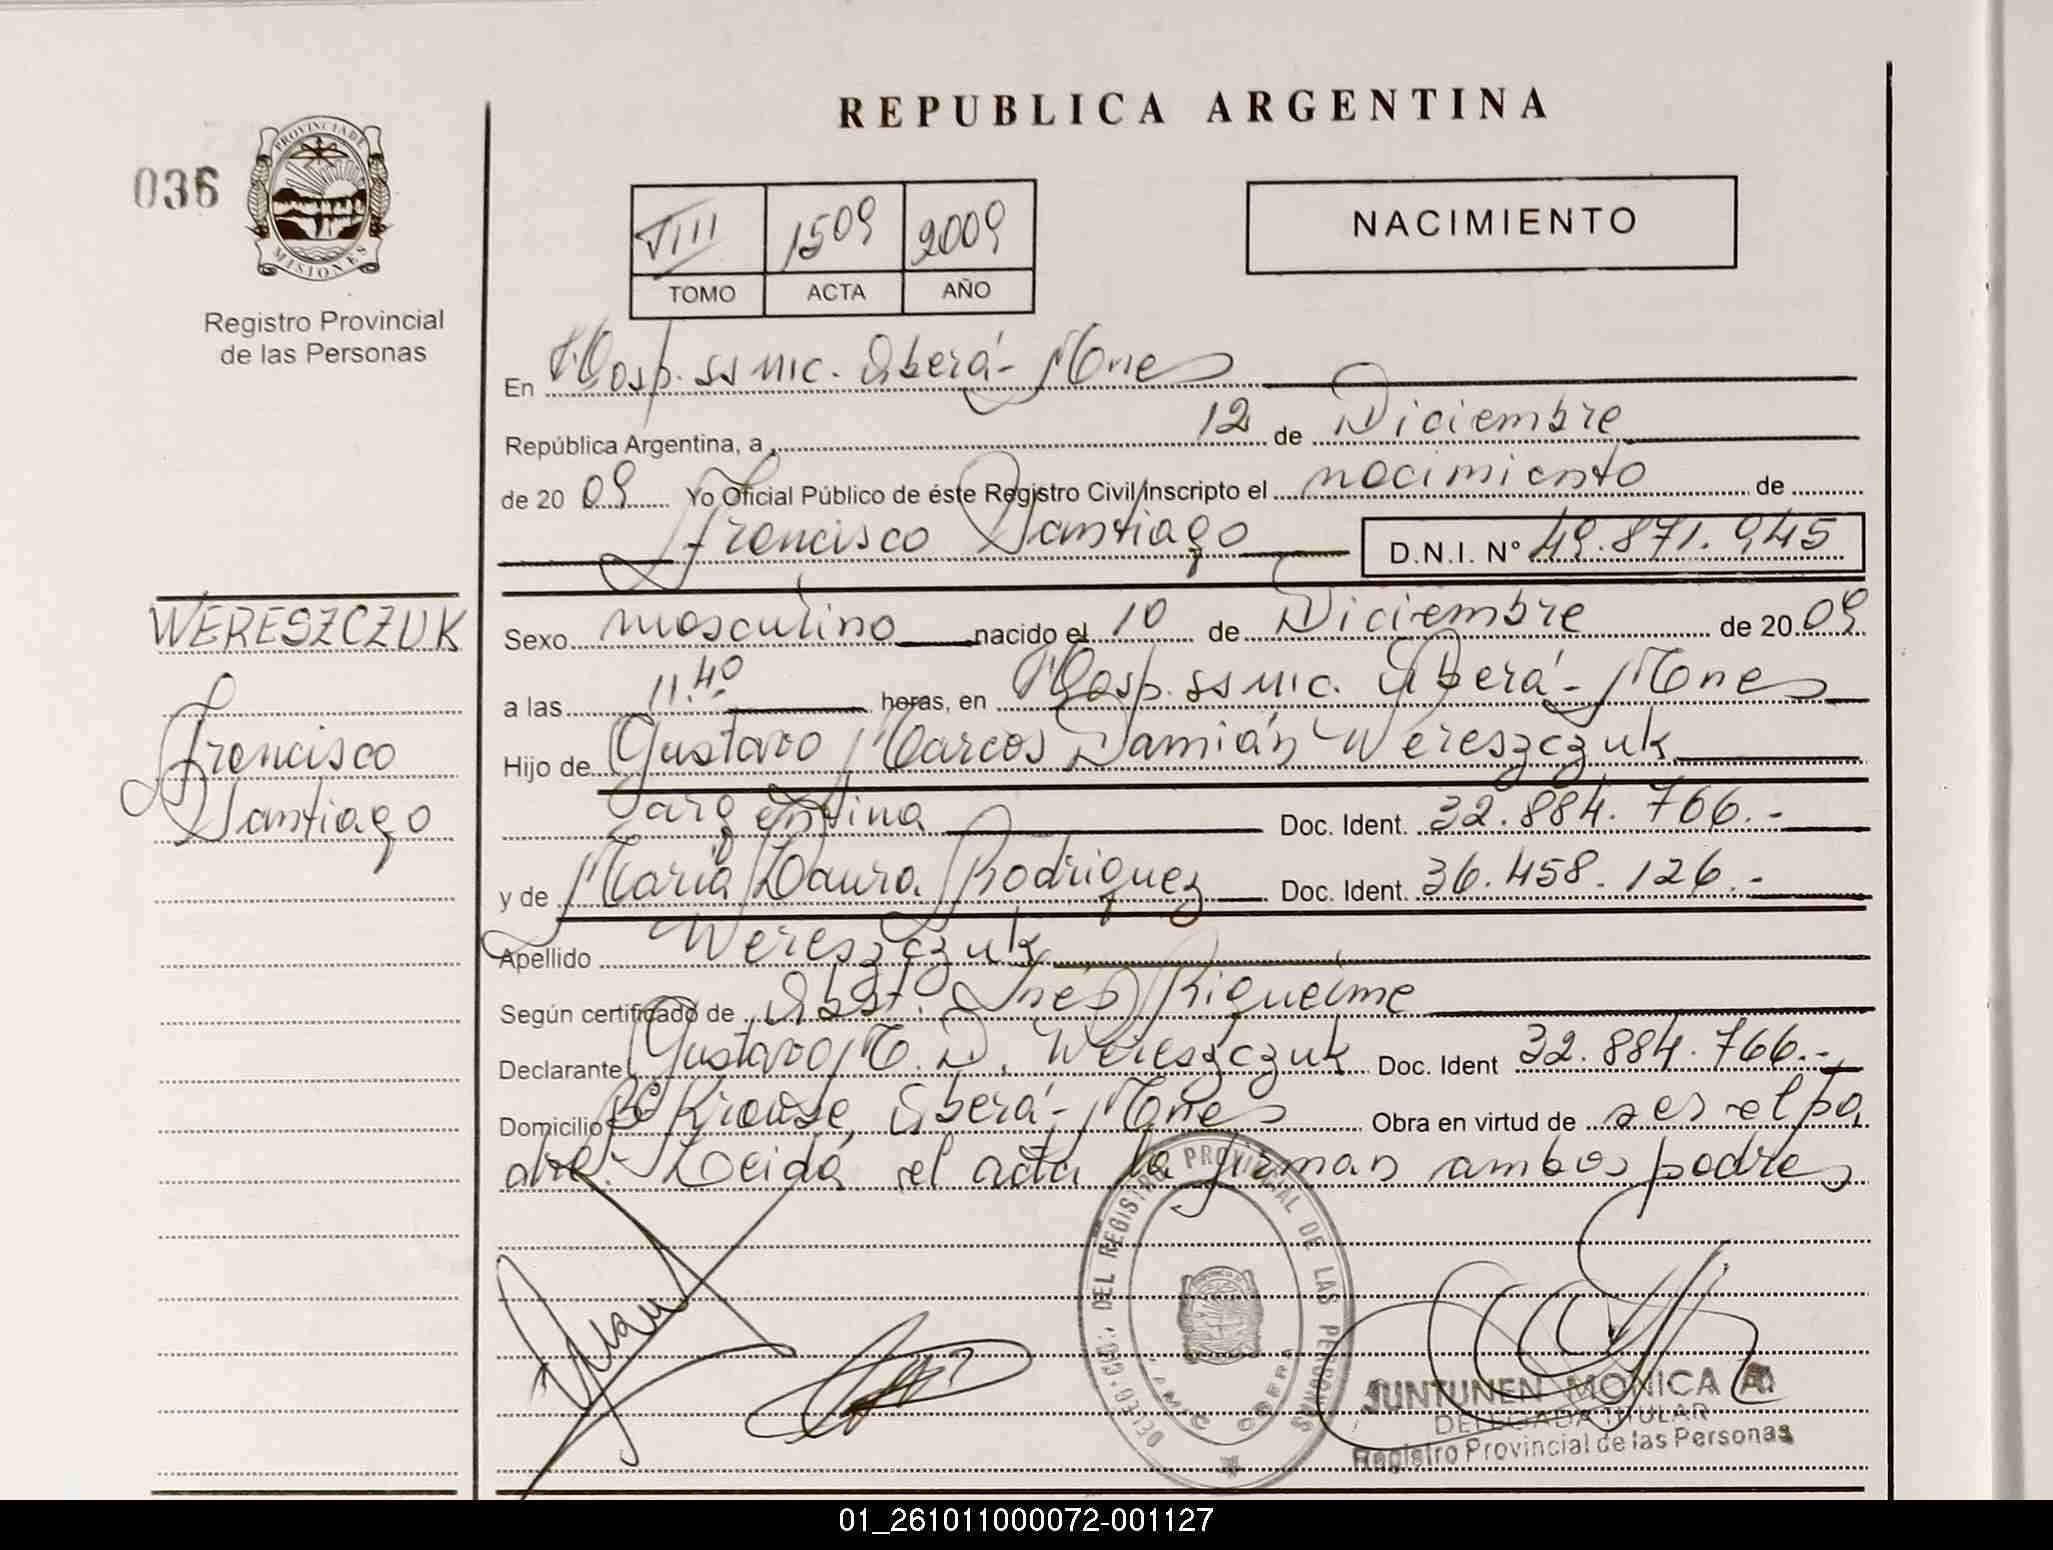 REPUBLICA ARGENTINA
036
PROVINCIA DE
MISIONES
Registro Provincial
de las Personas
VIII 1509 2009
TOMO ACTA AÑO
NACIMIENTO
En Hosp. ss mic. Oberá - Mnes
República Argentina, a 12 de Diciembre
de 20 09 Yo Oficial Público de éste Registro Civil inscripto el nacimiento de
Francisco Santiago D.N.I. N° 49.871.945
WERESZCZUK
Francisco
Santiago
Sexo masculino nacido el 10 de Diciembre de 20 09
a las 11.40 horas, en Hosp. ss mic. Oberá - Mnes
Hijo de Gustavo Marcos Damián Wereszczuk
argentina Doc. Ident. 32.884.766.-
y de María Laura Rodriguez Doc. Ident. 36.458.126.-
Apellido Wereszczuk
Según certificado de Obst. Inés Riquelme
Declarante Gustavo M. D. Wereszczuk Doc. Ident 32.884.766.-
Domicilio Bº Krause, Oberá - Mnes Obra en virtud de ser el pa
dre.- Leida el acta la firman ambos padres
DEL REGISTRO PROVINCIAL DE LAS PERSONAS
OBERA
JUNTUNEN MONICA A.
DELEGADA TITULAR
Registro Provincial de las Personas
01_261011000072-001127